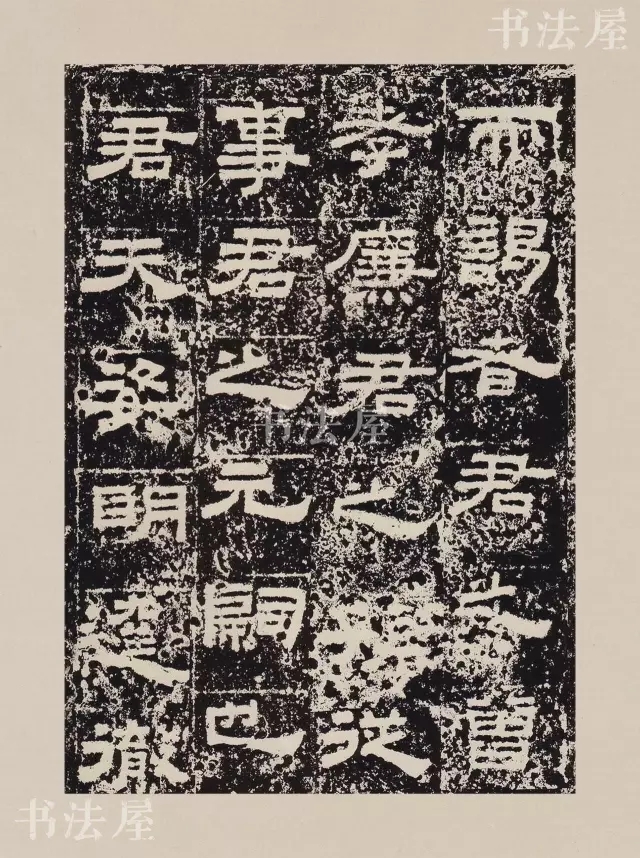 而謁者君之曾
孝廉君之 從
事君之元嗣也
君天姿明達徹
书法屋
书法屋
书法屋